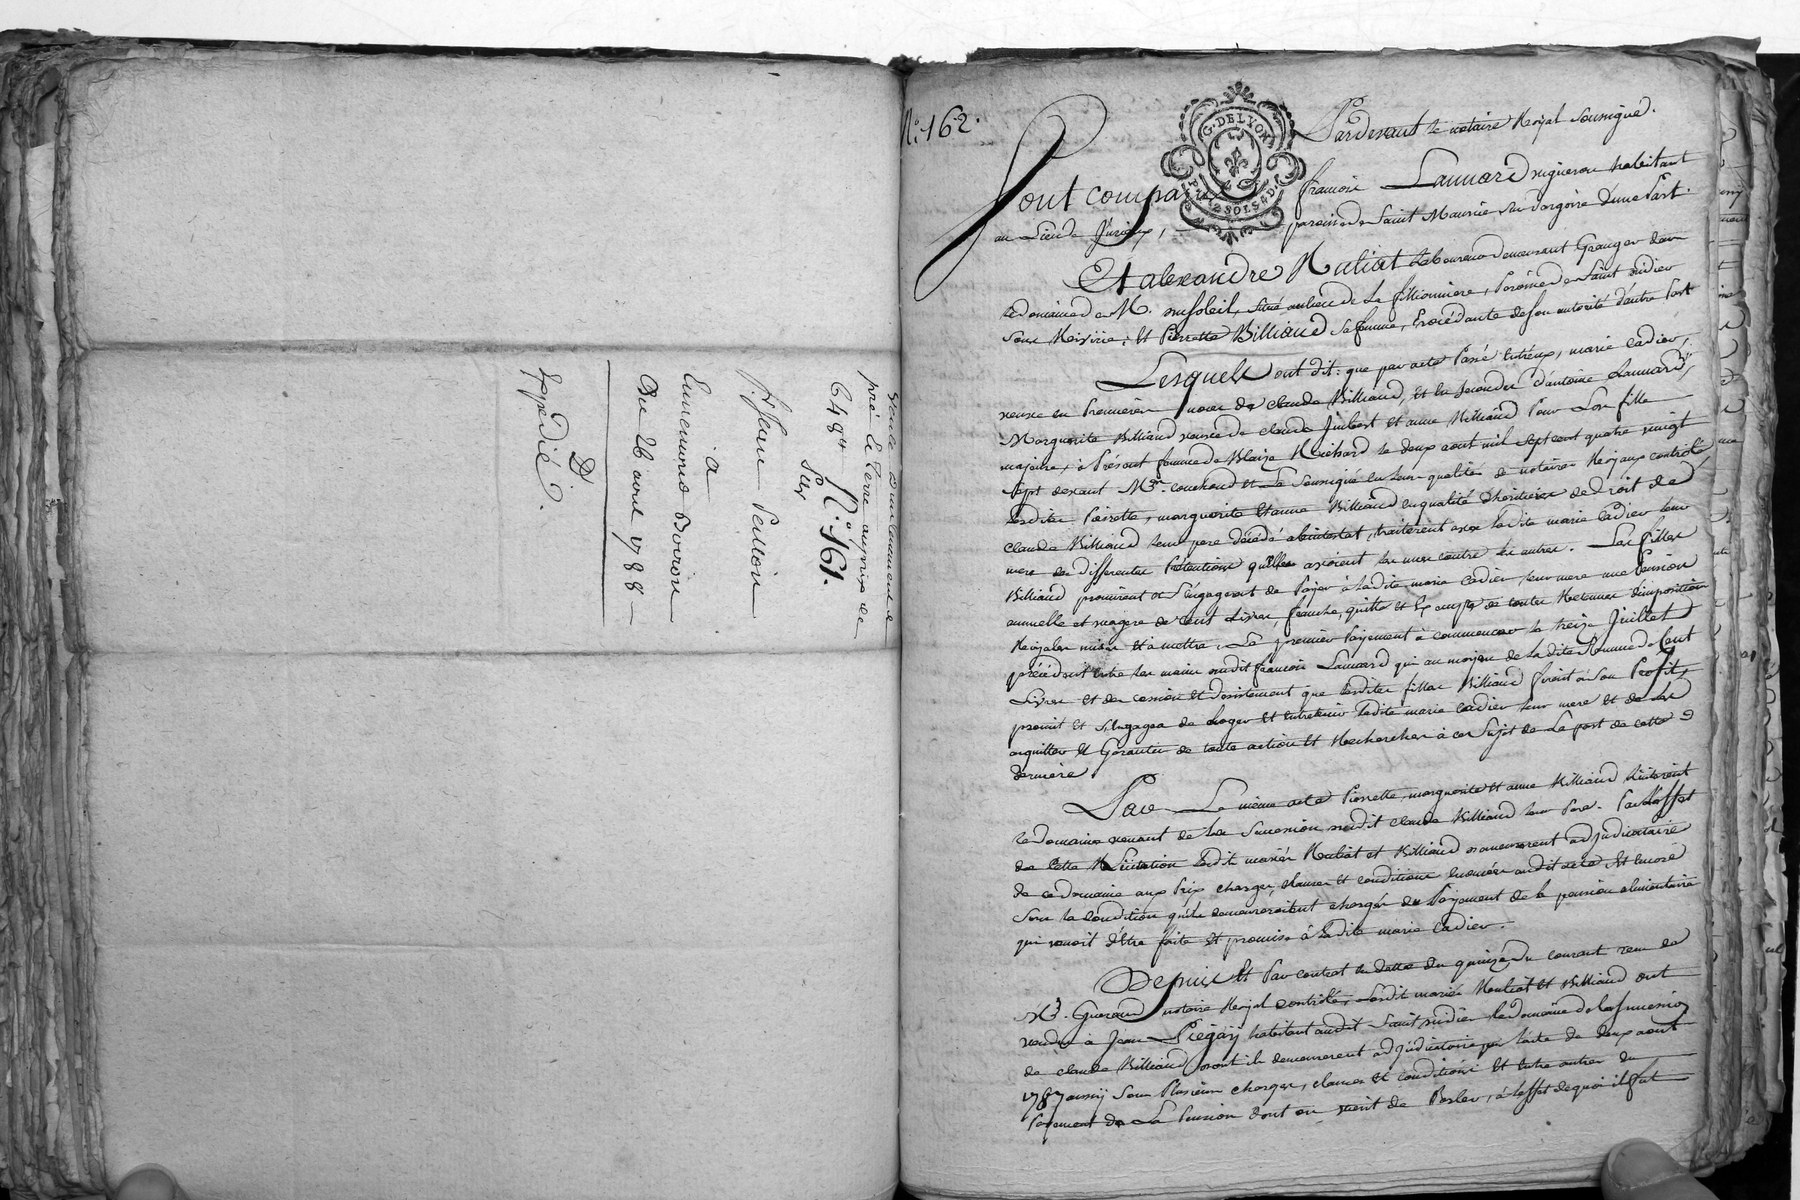 vente d'un tenement de
pré et Terre au prix de
648# N.o 161.
Par
J. Jean Pellion
a
Enremond Boiron
Du 26 avril 1788
D
Expédié.
N.o 162.
G. DE LYON
P. 2 SOLS 4 D.
Pardevant le notaire Royal soussigné.
Sont comparu françois Lannard vigneron habitant
au Lieu de Jurieux, paroisse de Saint Maurice sur dargoire d'une Part.
Et alexandre Ruliat Laboureur demeurant Granger dans
le domaine de Mr. onsoleil, situé au lieu de la fillionniere, Paroisse de Saint andier
sous Reivirie; Et Pierrette Billiaud sa femme, Procédante de son autorité d'autre Part
Lesquels ont dit: que par acte Passé entreux, marie Cadier,
veuve en Premieres noces de claude Billiaud, et en secondes d'antoine Lannard,
Marguerite Billiaud veuve de claude Imbert et anne Billiaud Pour Lors fille
majeure, à Présent femme de Blaize Richard le deux aout mil sept cent quatre vingt
sept devant Mre. couchoud et Le soussigné en leur qualité de notaires Royaux controllé
Lesdites Pierrette, marguerite et anne Billiaud en qualité d'heritieres de droit de
claude Billiaud leur pere décédé abintestat, traiterent avec ladite marie Cadier leur
mere de differentes Prétentions qu'elles avoient les unes contre les autres. Les filles
Billiaud promirent et s'engagerent de Payer à ladite marie Cadier leur mere une Pension
annuelle et viagere de cent Livres, franche, quitte et Exempte de toutes Retenues d'imposition
Royales mises et à mettre, Le premier Payement à commencer le treize Juillet
précédent entre les mains dudit françois Lannard qui au moyen de ladite somme de Cent
Livres et de cession et désistement que lesdites filles Billiaud firent à son Profit,
promit et s'engagea de loger et entretenir ladite marie Cadier leur mere et de les
acquitter et Garantir de toute action et Recherches à ce sujet de la part de cette
derniere
Par Le même acte Pierrette, marguerite et anne Billiaud liciterent
le domaine venant de la succession dudit claude Billiaud leur Pere. Par l'effet
de cette Licitation lesdit mariés Ruliat et Billiaud demeurerent adjudicataires
de ce domaine aux Prix charges, clauses et conditions énoncées audit acte et encore
sous la condition qu'ils demeureroient chargés du Payement de la pension alimentaire
qui venoit d'être faite et promise à ladite marie Cadier.
Depuis Et Par contrat en datte du quinze du courant reçu de
Mre. Gueraud notaire Royal controllé, lesdit mariés Ruliat et Billiaud ont
vendu à Jean Piégay habitant audit Saint andier le domaine de la succession
de claude Billiaud dont ils demeurerent adjudicataires par l'acte de deux aout
1787 aussi sous Plusieurs charges, clauses et conditions et entre autres du
Payement de La Pension dont on vient de Parler, à l'effet de quoi il fut